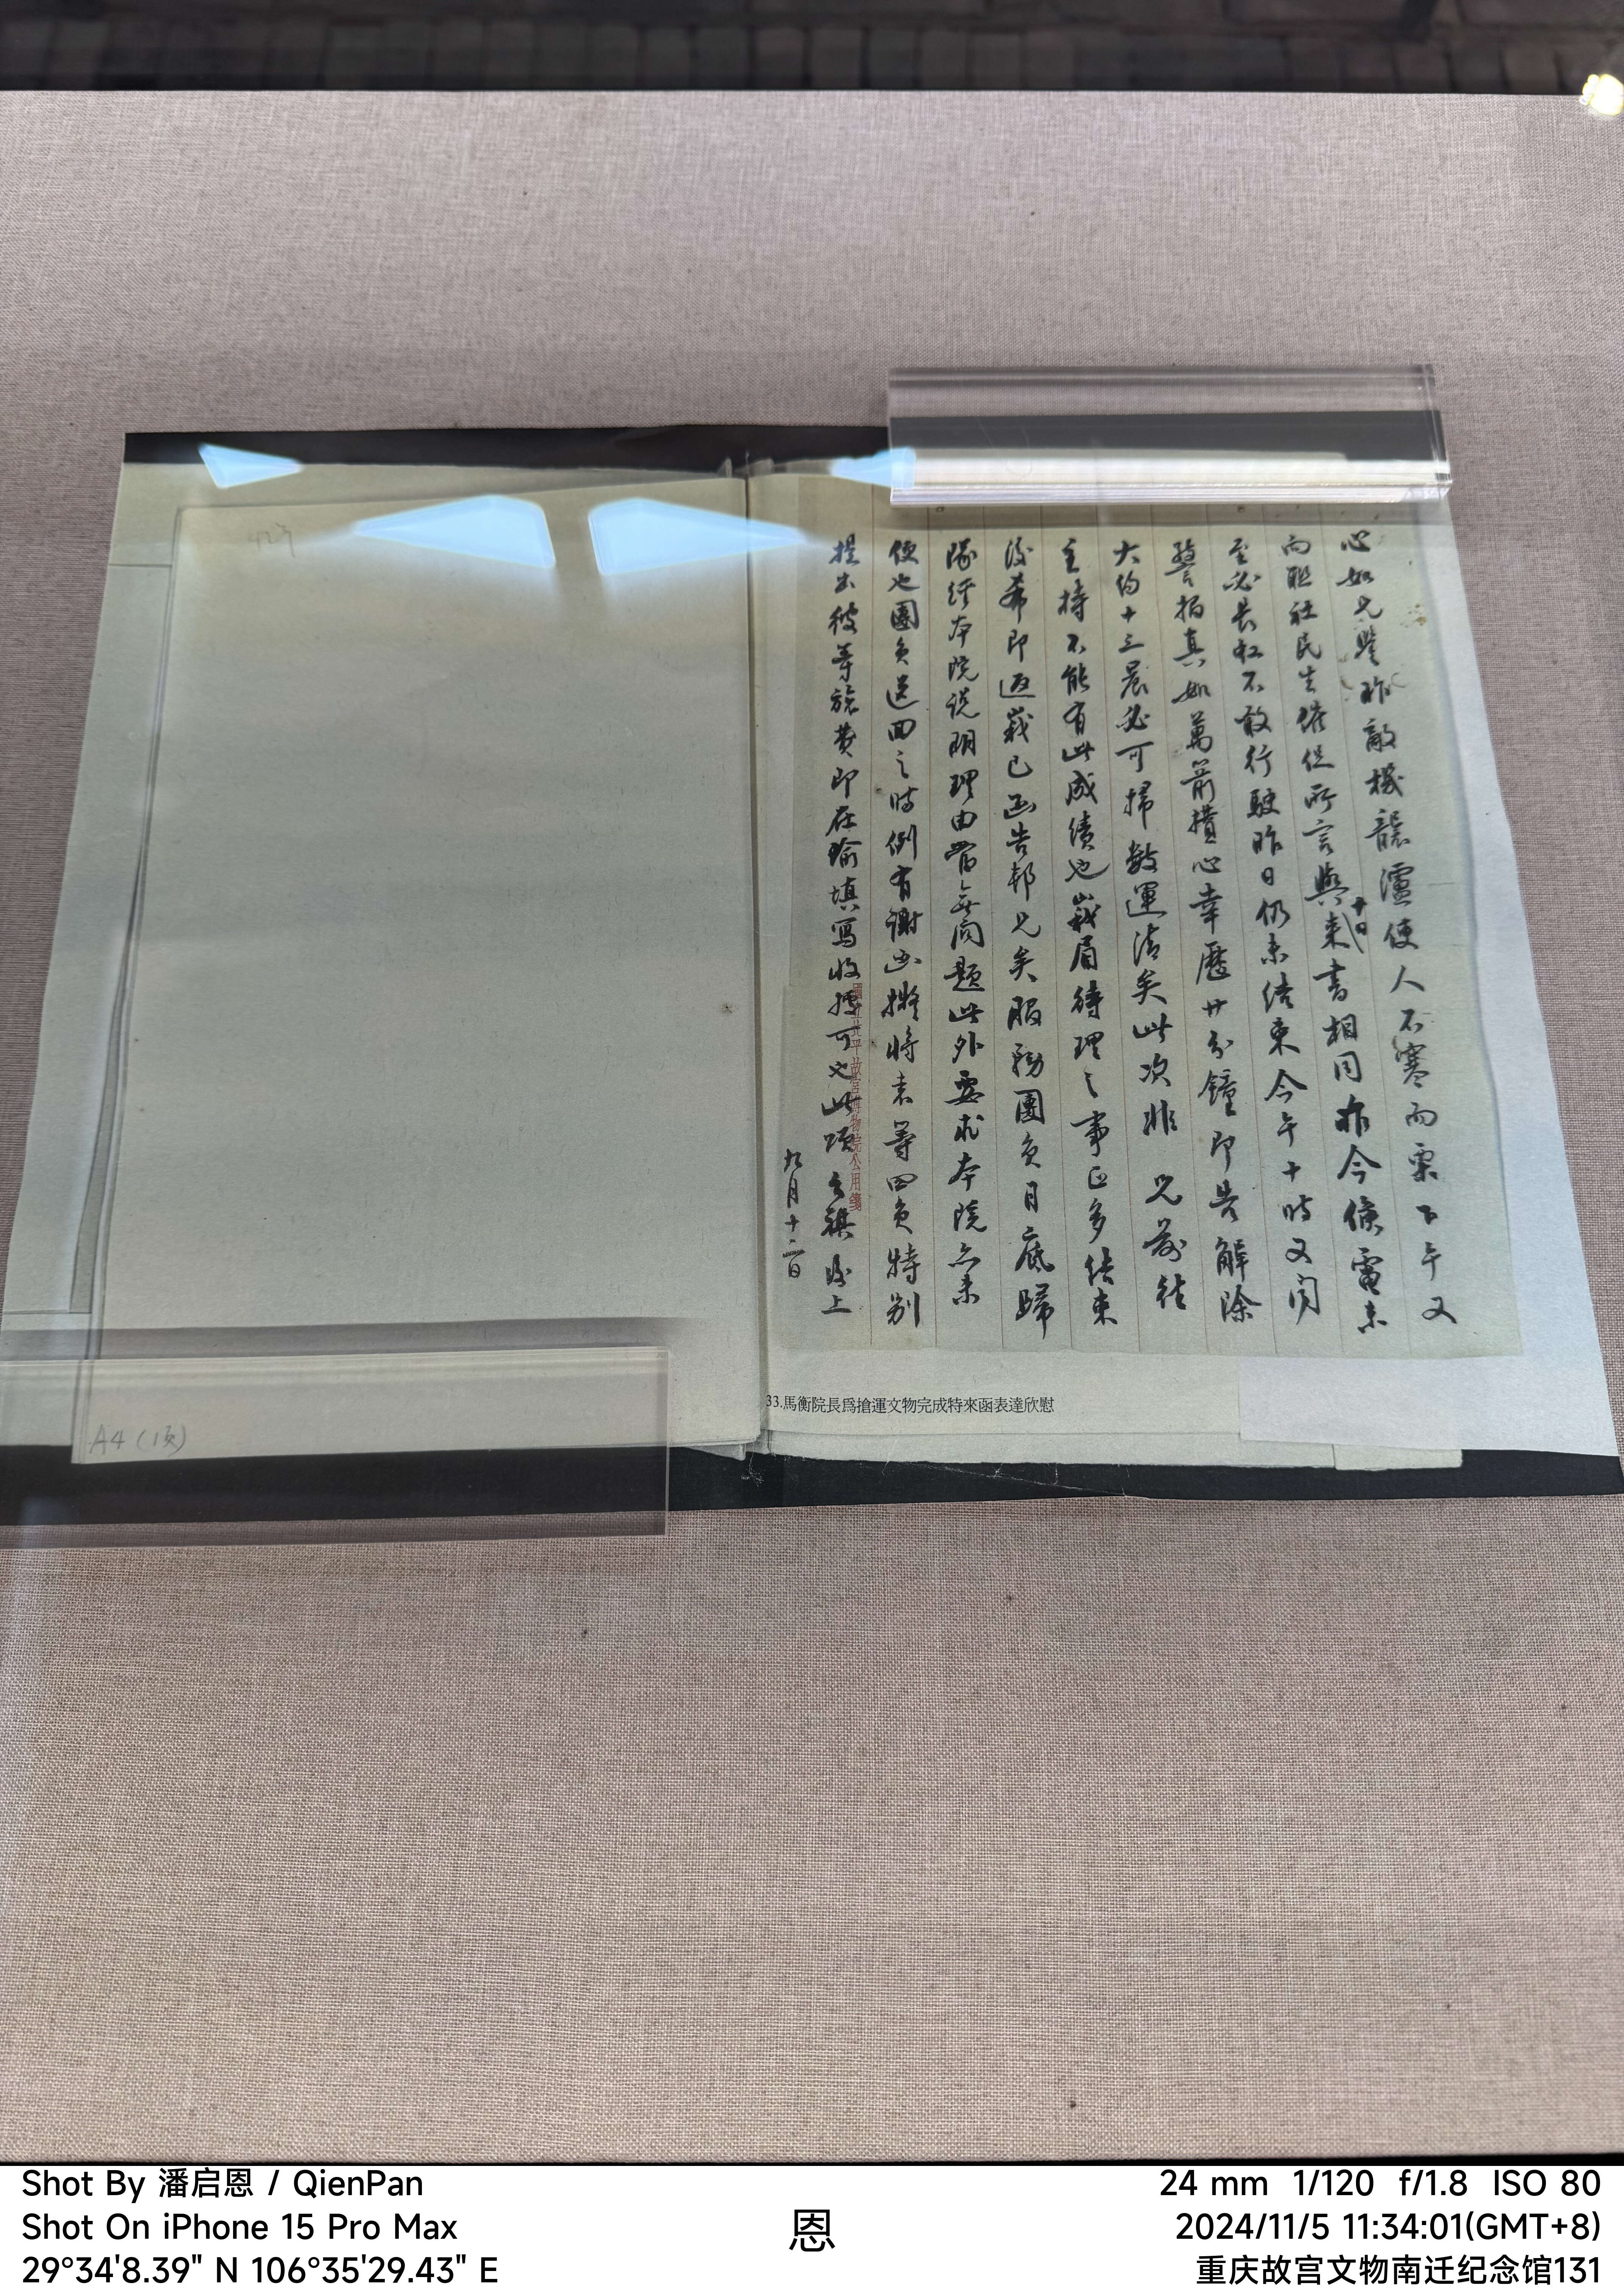 心如兄鑒昨敵機襲瀘使人不寒而栗下午又
向聯社民生催促所言與十日來書相同昨今候電未
至必長缸不敢行駛昨日仍未結束今午十時又聞
警損真如萬箭攢心幸歷廿分鐘即告解除
大約十三晨必可掃數運清矣此次非 兄前往
主持不能有此成績也峩眉待理之事正多結束
後希即返峩已函告邦兄矣服務團員月底歸
隊經本院說明理由當無問題此外要求本院亦未
便也團員送回之時例有謝函擬將袁等四員特別
提出彼等旅費即在渝填寫收據可也此頌 台祺 上
九月十二日
國立北平故宮博物院公用箋
33.馬衡院長爲搶運文物完成特來函表達欣慰
A4（1頁）
Shot By 潘启恩 / QienPan
Shot On iPhone 15 Pro Max
29°34'8.39" N 106°35'29.43" E
恩
24 mm 1/120 f/1.8 ISO 80
2024/11/5 11:34:01(GMT+8)
重庆故宫文物南迁纪念馆131